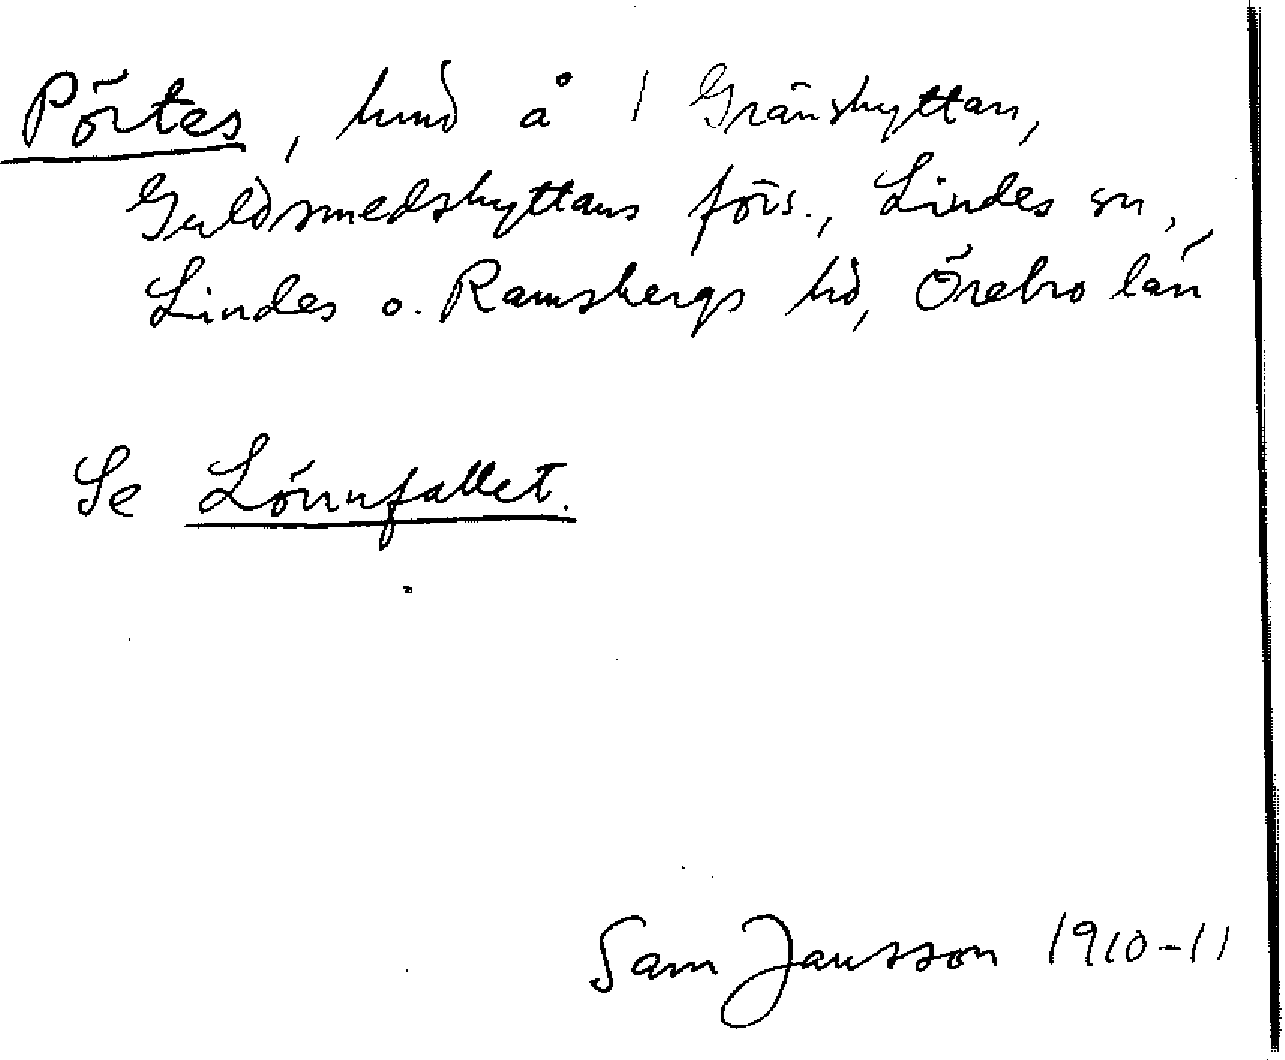 Pörtes, hmd å 1 Gränshyttan,
Guldsmedshyttans förs., Lindes sn,
Lindes o. Ramsbergs hd, Örebro län
Se Lönnfallet.
Sam Jansson 1910-11